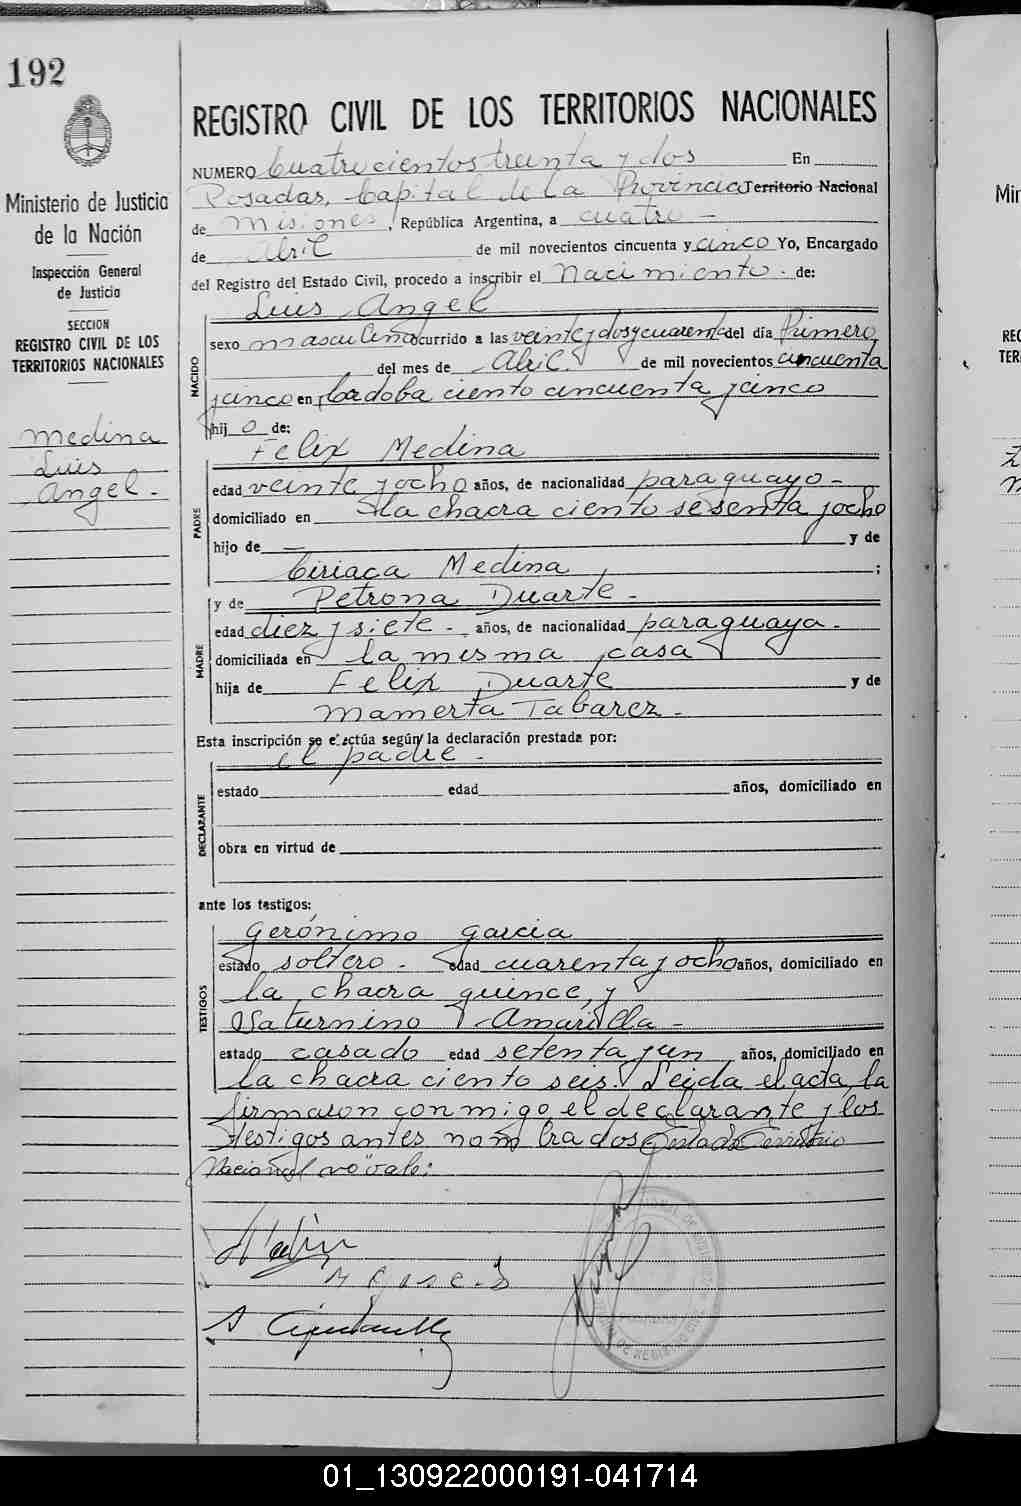 192
Ministerio de Justicia
de la Nación
Inspección General
de Justicia
SECCION
REGISTRO CIVIL DE LOS
TERRITORIOS NACIONALES
Medina
Luis
Angel.-
REGISTRO CIVIL DE LOS TERRITORIOS NACIONALES
NUMERO Cuatrocientos treinta y dos En
Posadas, Capital de la Provincia Territorio Nacional
de Misiones, República Argentina, a cuatro -
de Abril de mil novecientos cincuenta y cinco Yo, Encargado
del Registro del Estado Civil, procedo a inscribir el Nacimiento. de:
Luis Angel
NACIDO
sexo masculino ocurrido a las veinte y dos y cuarenta del día Primero
del mes de Abril. de mil novecientos cincuenta
y cinco en Cordoba ciento cincuenta y cinco
hij o de:
Felix Medina
PADRE
edad veinte y ocho años, de nacionalidad paraguayo -
domiciliado en la chacra ciento sesenta y ocho
hijo de — y de
Ciriaca Medina ;
y de Petrona Duarte -
MADRE
edad diez y siete - años, de nacionalidad paraguaya -
domiciliada en la misma casa
hija de Felix Duarte y de
Mamerta Tabarez -
Esta inscripción se efectúa según la declaración prestada por:
el padre -
DECLARANTE
estado edad años, domiciliado en
obra en virtud de
ante los testigos:
TESTIGOS
Gerónimo Garcia
estado soltero - edad cuarenta y ocho años, domiciliado en
la chacra quince, y
Saturnino Amarilla -
estado casado edad setenta y un años, domiciliado en
la chacra ciento seis. Leida el acta, la
firmaron conmigo el declarante y los
testigos antes nombrados Testado Territorio
Nacional no vale:
Min
REG
TER
01_130922000191-041714